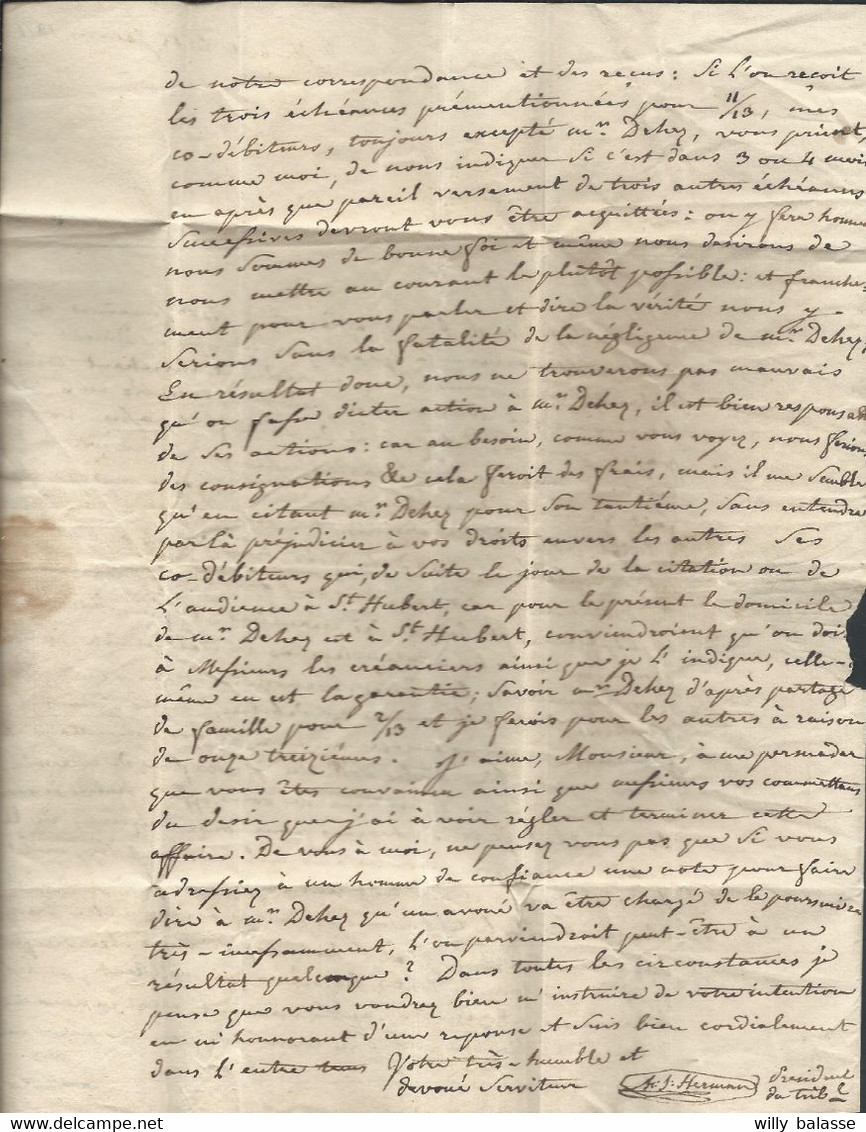 de notre correspondance et des reçus : Si l'on reçoit
les trois échéances prémentionnées pour 11/13, mes
co-débiteurs, toujours excepté mr. Dehez, vous prient,
comme moi, de nous indiquer si c'est dans 3 ou 4 mois
en après que pareil versement de trois autres échéances
successives devront vous être acquittées : on y fera honneur
nous sommes de bonne foi et même nous desirons de
nous mettre au courant le plutôt possible : et franche-
ment pour vous parler et dire la vérité nous y
serions sans la fatalité de la négligence de mr. Dehez,
En résultat donc, nous ne trouverons pas mauvais
qu'on fasse dicter action à mr. Dehez, il est bien responsable
de ses actions : car au besoin, comme vous voyez, nous ferions
des consignations & cela feroit des frais, mais il me semble
qu'en citant mr. Dehez pour son tantième, sans entendre
par là préjudicier à vos droits envers les autres ses
co-débiteurs qui, de suite le jour de la citation ou de
l'audience à St. Hubert, car pour le présent le domicile
de mr. Dehez est à St. Hubert, conviendroient qu'on doit
à Messieurs les créanciers ainsi que je l'indique, celle-ci
même en est la garantie ; savoir mr. Dehez d'après partage
de famille pour 2/13 et je ferois pour les autres à raison
de onze treizièmes. J'aime, Monsieur, à me persuader
que vous êtes convaincu ainsi que messieurs vos commettans
du desir que j'ai à voir régler et terminer cette
affaire. De vous à moi, ne pensez vous pas que si vous
adressiez à un homme de confiance une note pour faire
dire à mr. Dehez qu'un avoué va être chargé de le poursuivre
très-incessamment, l'on parviendrait peut-être à un
résultat quelconque ? Dans toutes les circonstances je
pense que vous voudrez bien m'instruire de votre intention
en m'honorant d'une reponse et suis bien cordialement
dans l'entre tems Votre très-humble et
devoué Serviteur
Herman président
du tribl
willy balasse